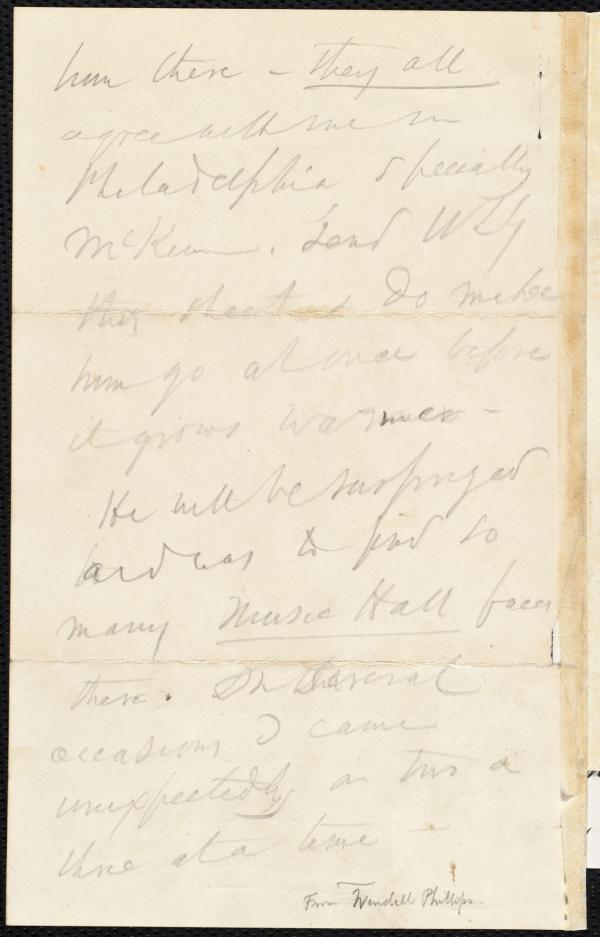 him there – they all
agree with me in
Philadelphia specially
McKim. Send WLG
this sheet & do make
him go at once before
it grows warmer –
He will be surprized
as I was to find so
many Music Hall faces
there. On several
occasions I came
unexpectedly on two or
three at a time –
From Wendell Phillips.